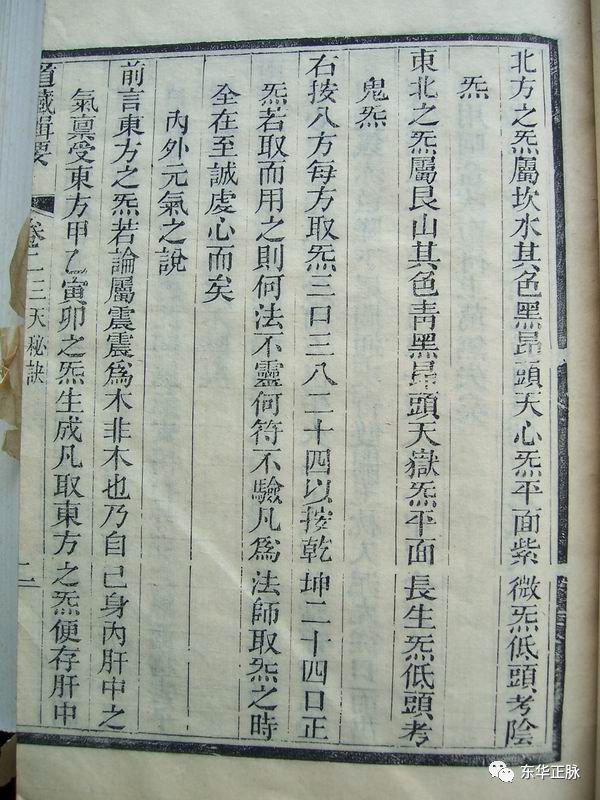 北方之炁屬坎水其色黑昂頭天心炁平面紫微炁低頭考陰
炁
東北之炁屬艮山其色青黑昂頭天嶽炁平面長生炁低頭考
鬼炁
右按八方每方取炁三口三八二十四以按乾坤二十四口正
炁若取而用之則何法不靈何符不驗凡爲法師取炁之時
全在至誠虔心而矣
內外元氣之說
前言東方之炁若論屬震震爲木非木也乃自己身內肝中之
氣稟受東方甲乙寅卯之炁生成凡取東方之炁便存肝中
道藏輯要
卷二三天秘訣
二
东华正脉